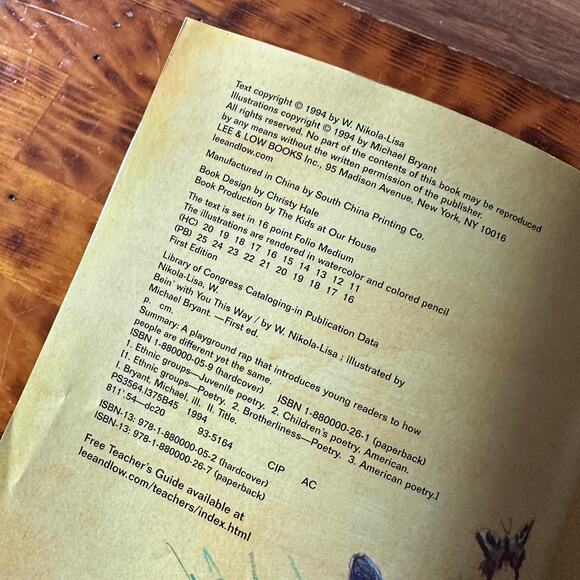 Text copyright © 1994 by W. Nikola-Lisa
Illustrations copyright © 1994 by Michael Bryant
All rights reserved. No part of the contents of this book may be reproduced
by any means without the written permission of the publisher.
LEE & LOW BOOKS Inc., 95 Madison Avenue, New York, NY 10016
leeandlow.com
Manufactured in China by South China Printing Co.
Book Design by Christy Hale
Book Production by The Kids at Our House
The text is set in 16 point Folio Medium
The illustrations are rendered in watercolor and colored pencil
(HC) 20 19 18 17 16 15 14 13 12 11
(PB) 25 24 23 22 21 20 19 18 17 16
First Edition
Library of Congress Cataloging-in Publication Data
Nikola-Lisa, W.
Bein' with You This Way / by W. Nikola-Lisa ; illustrated by
Michael Bryant. —First ed.
p. cm.
Summary: A playground rap that introduces young readers to how
people are different yet the same.
ISBN 1-880000-05-9 (hardcover) ISBN 1-880000-26-1 (paperback)
1. Ethnic groups—Juvenile poetry. 2. Children's poetry, American.
[1. Ethnic groups—Poetry. 2. Brotherliness—Poetry. 3. American poetry.]
I. Bryant. Michael, ill. II. Title.
PS3564.I375B45 1994
811'.54—dc20 93-5164 CIP AC
ISBN-13: 978-1-880000-05-2 (hardcover)
ISBN-13: 978-1-880000-26-7 (paperback)
Free Teacher's Guide available at
leeandlow.com/teachers/index.html